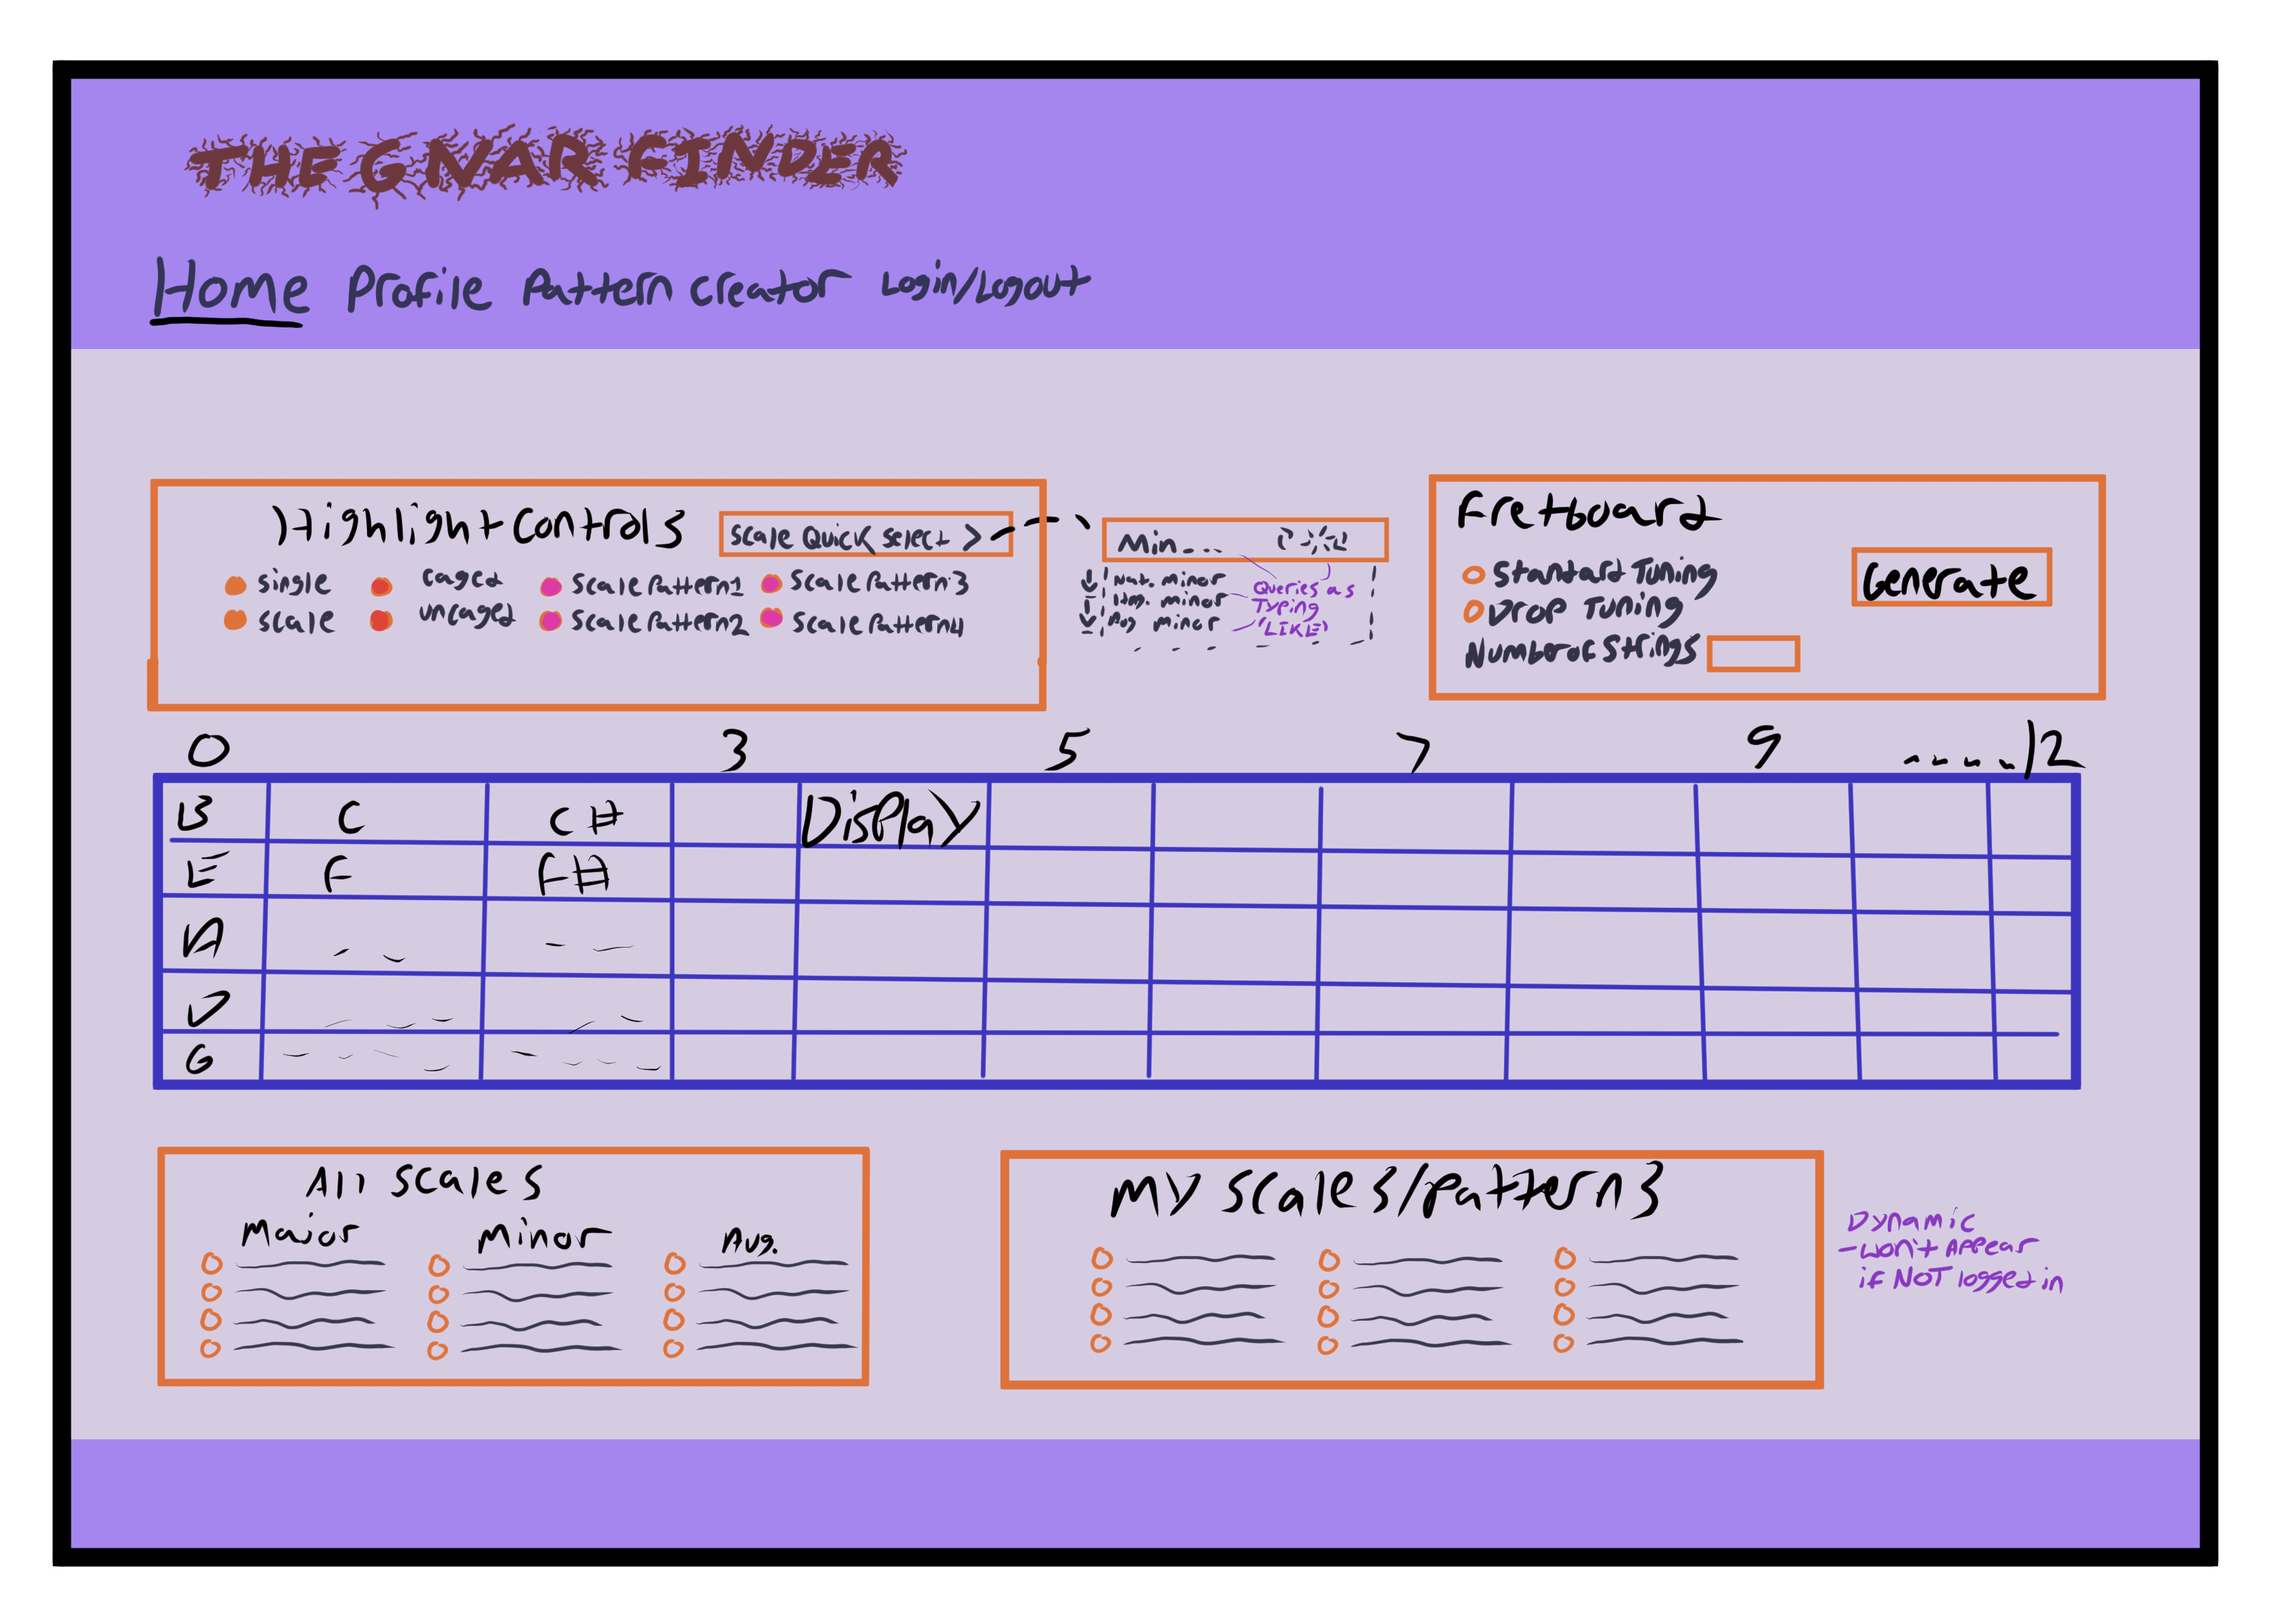 THE GNAR FINDER
Home Profile Pattern creator Login/Logout
Highlight controls
Scale Quick select >
single
scale
caged
uncaged
Scale Pattern1
Scale Pattern2
Scale Pattern3
Scale Pattern4
Min...
Nat. minor
Hm. minor
Aug minor
Queries as
Typing
(LIKE)
Fretboard
Standard Tuning
Drop Tuning
Number of Strings
Generate
0 3 5 7 9 .....12
B C C# Display
E F F#
A
D
G
All scales
Major Minor Aug.
My scales/patterns
Dynamic
-won't Appear
if NOT logged in